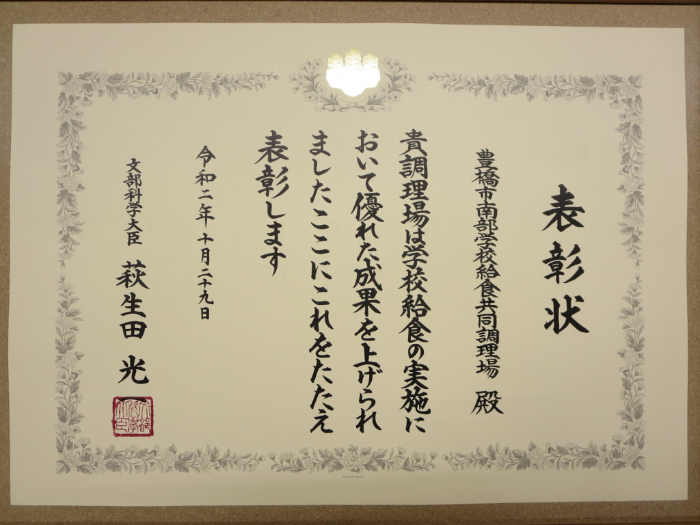 表彰状
豊橋市南部学校給食共同調理場 殿
貴調理場は学校給食の実施に
おいて優れた成果を上げられ
ましたここにこれをたたえ
表彰します
令和二年十月二十九日
文部科学大臣 萩生田 光